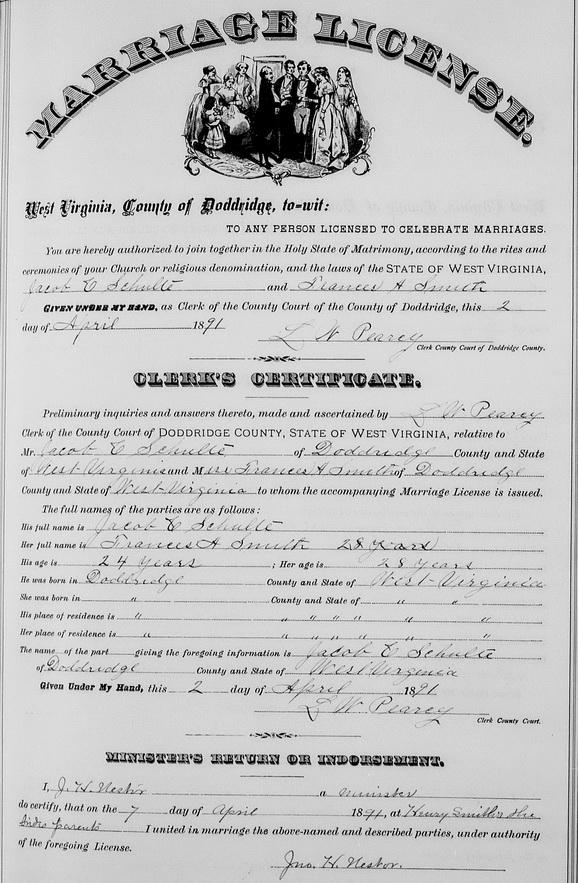 MARRIAGE LICENSE.
West Virginia, County of Doddridge, to-wit:
TO ANY PERSON LICENSED TO CELEBRATE MARRIAGES.
You are hereby authorized to join together in the Holy State of Matrimony, according to the rites and
ceremonies of your Church or religious denomination, and the laws of the STATE OF WEST VIRGINIA,
Jacob C Schulte and Frances A Smith
GIVEN UNDER MY HAND, as Clerk of the County Court of the County of Doddridge, this 2
day of April 1891
L W Pearcy
Clerk County Court of Doddridge County.
CLERK'S CERTIFICATE.
Preliminary inquiries and answers thereto, made and ascertained by L W Pearcy
Clerk of the County Court of DODDRIDGE COUNTY, STATE OF WEST VIRGINIA, relative to
Mr. Jacob C Schulte of Doddridge County and State
of West Virginia and Miss Frances A Smith of Doddridge
County and State of West-Virginia to whom the accompanying Marriage License is issued.
The full names of the parties are as follows:
His full name is Jacob C Schulte
Her full name is Frances A Smith 28 years
His age is 24 years ; Her age is 28 years
He was born in Doddridge County and State of West-Virginia
She was born in " County and State of " "
His place of residence is " " " " " " "
Her place of residence is " " " " " " "
The name of the part giving the foregoing information is Jacob C Schulte
of Doddridge County and State of West Virginia
Given Under My Hand, this 2 day of April 1891
L W Pearcy
Clerk County Court.
MINISTER'S RETURN OR INDORSEMENT.
I, J. H. Nestor a minister
do certify, that on the 7 day of April 1891, at Henry Smiths the
brides parents I united in marriage the above-named and described parties, under authority
of the foregoing License.
Jno. H. Nestor.